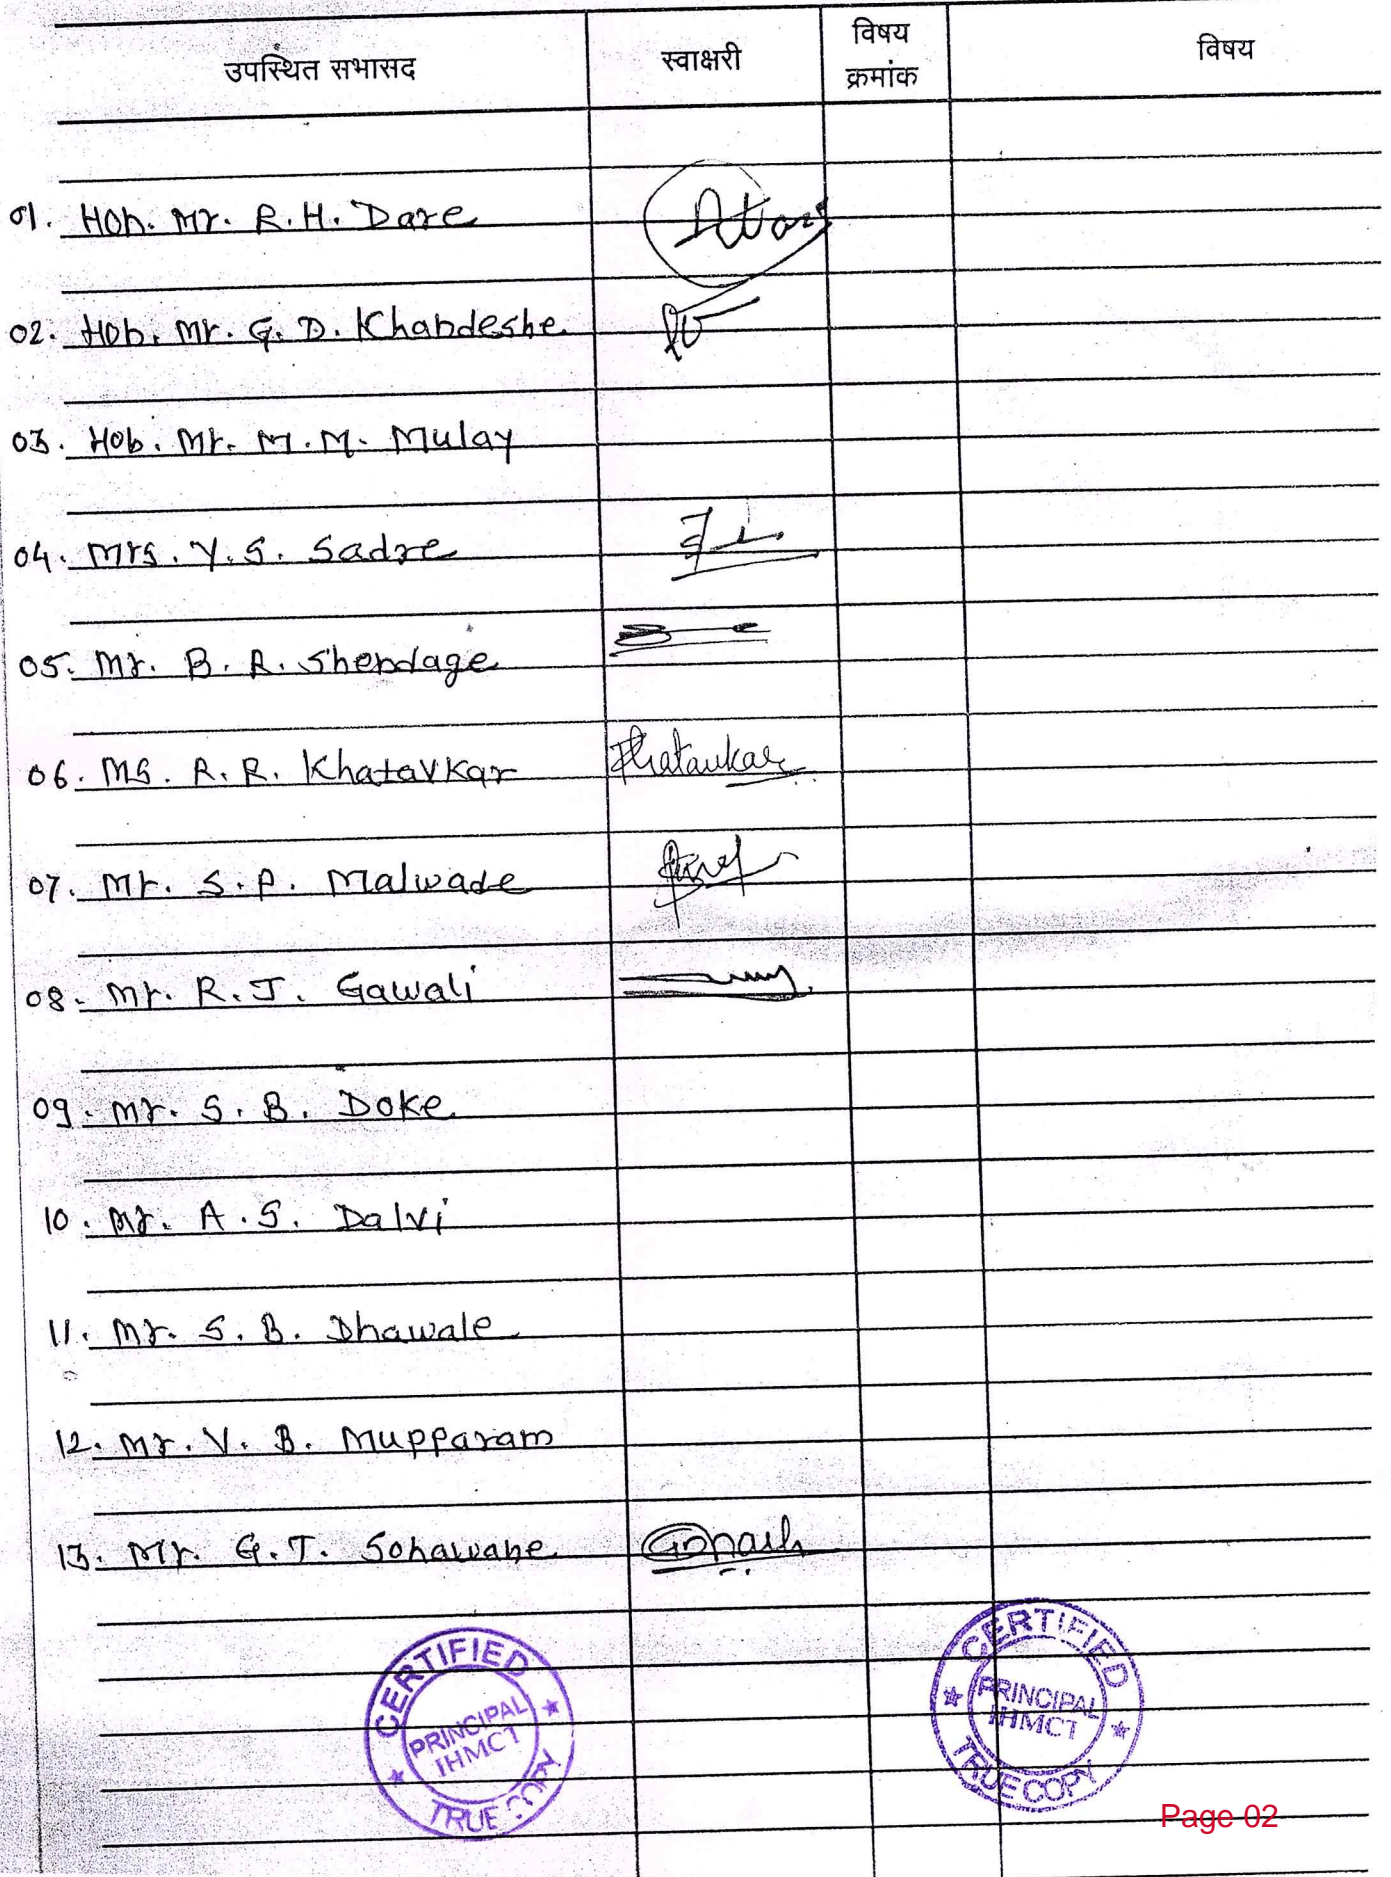 उपस्थित सभासद स्वाक्षरी विषय क्रमांक विषय
01. Hon. Mr. R.H. Dare
02. Hon. Mr. G. D. Khandeshe
03. Hon. Mr. M. M. Mulay
04. Mrs. Y. S. Sadre
05. Mr. B. R. Shendage
06. Ms. R. R. Khatavkar Khatavkar
07. Mr. S. P. Malwade
08. Mr. R. J. Gawali
09. Mr. S. B. Doke
10. Mr. A. S. Dalvi
11. Mr. S. B. Dhawale
12. Mr. V. B. Mupparam
13. Mr. G. T. Sonawane
CERTIFIED
PRINCIPAL
IHMCT
TRUE COPY
CERTIFIED
PRINCIPAL
IHMCT
TRUE COPY
Page 02